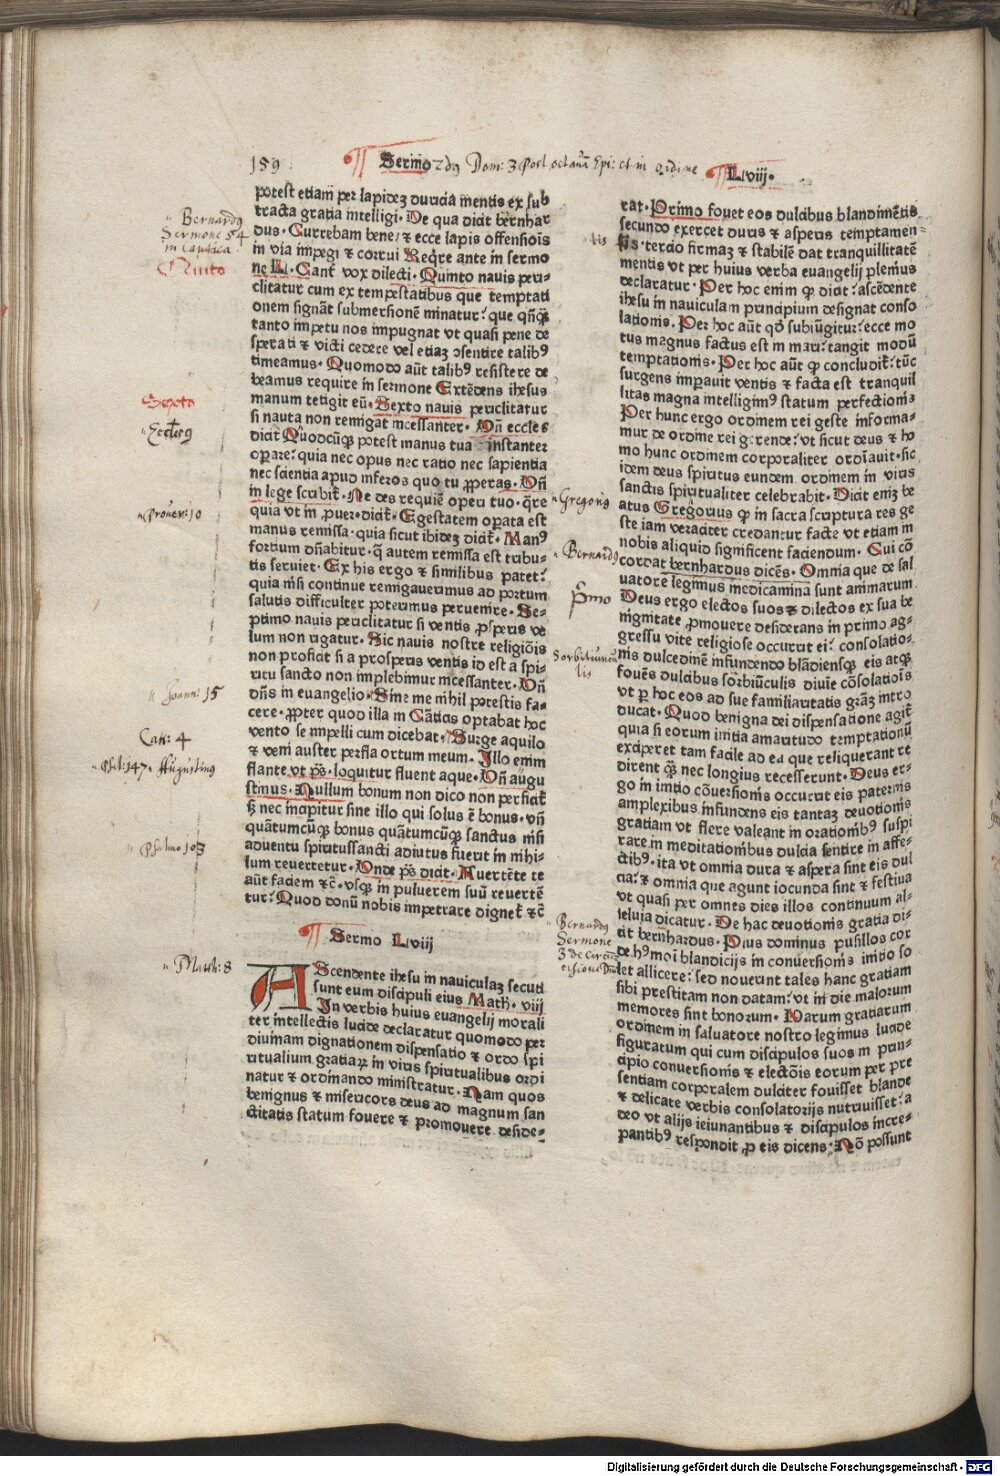 159
Sermo 2dus Dom: 3 Post octauā Epi: et in ordine Lviij.
potest etiam per lapidez duricia mentis ex sub
tracta gratia intelligi. De qua dicit bernhar
dus. Currebam bene/ ⁊ ecce lapis offensiōis
in via impegi ⁊ corrui Reqre ante in sermo
ne L. Cant̄ vox dilecti. Quinto nauis peri⸗
clitatur cum ex tempestatibus que temptati
onem signāt submersionē minatur? que qn̄qꝫ
tanto impetu nos impugnat vt quasi pene de
sperati ⁊ victi cedere vel etiaz ↄsentire talibꝰ
timeamus. Quomodo aūt talibꝰ resistere de
beamus require in sermone Extēdens ihesus
manum tetigit eū. Sexto nauis periclitatur
si nauta non remigat incessanter. Vn̄ eccles
dicit Quodcūqꝫ potest manus tua instanter
oꝑare: quia nec opus nec ratio nec sapientia
nec scientia apud inferos quo tu ꝓperas. Vn̄
in lege scribit̄. Ne des requiē operi tuo. q̄re
quia vt in ꝓuer. dicit̄. Egestatem oꝑata est
manus remissa. quia sicut ibidez dicit̄. Manꝰ
fortium dn̄abitur. q̄ autem remissa est tribu⸗
tis seruiet. Ex his ergo ⁊ similibus patet?
quia nisi continue remigauerimus ad portum
salutis difficulter poterimus peruenire. Se⸗
ptimo nauis periclitatur si ventis ꝓsperis ve
lum non rigatur. Sic nauis nostre religiōis
non proficit si a prosperis ventis id est a spi⸗
ritu sancto non implebimur incessanter. Vn̄
dn̄s in euangelio. Sine me nihil potestis fa⸗
cere. ꝓpter quod illa in Cāticis optabat hoc
vento se impelli cum dicebat. Surge aquilo
⁊ veni auster perfla ortum meum. Illo enim
flante vt ps̄. loquitur fluent aque. Vn̄ augu
stinus. Nullum bonum non dico non perficit̄
sꝫ nec incipitur sine illo qui solus ē bonus. vn̄
quātumcūqꝫ bonus quātumcūqꝫ sanctus nisi
aduentu spiritussancti adiutus fuerit in nihi⸗
lum reuertetur. Vnde ps̄ dicit. Auertēte te
aūt faciem ⁊c̄. vsqꝫ in puluerem suū reuertē
tur? Quod donū nobis impetrare dignet̄ ⁊c̄
Sermo Lviij
AScendente ihesu in nauiculaz secuti
sunt eum discipuli eius Math. viij
In verbis huius euangelij morali
ter intellectis lucide declaratur quomodo per
diuinam dignationem dispensatio ⁊ ordo spi
ritualium gratiaꝝ in viris spiritualibus ordi
natur ⁊ ordinando ministratur. Nam quos
benignus ⁊ misericors deus ad magnum san
ctitatis statum fouere ⁊ promouere deside⸗
rat. Primo fouet eos dulcibus blandimētis
secundo exercet duris ⁊ asperis temptamen⸗
tis. tercio firmaz ⁊ stabilē dat tranquillitatē
mentis vt per huius verba euangelij plenius
declaratur. Per hoc enim ꝙ dicit? ascēdente
ihesu in nauiculam principium designat conso
lationis. Per hoc aūt qd̄ subiūgitur? ecce mo
tus magnus factus est in mari? tangit modū
temptationis. Per hoc aūt ꝙ concludit̄? tūc
surgens imperauit ventis ⁊ facta est tranquil
litas magna intelligimꝰ statum perfectionis
Per hunc ergo ordinem rei geste informa⸗
mur de ordine rei gerende? vt sicut deus ⁊ ho
mo hunc ordinem corporaliter ordīauit. sic
idem deus spiritus eundem ordinem in viris
sanctis spiritualiter celebrabit. Dicit eniz be
atus Gregorius ꝙ in sacra scriptura res ge
ste iam veraciter credantur facte vt etiam in
nobis aliquid significent faciendum. Cui cō
cordat bernhardus dicēs. Omnia que de sal
uatore legimus medicamina sunt animarum
Deus ergo electos suos ⁊ dilectos ex sua be
nignitate ꝓmouere desiderans in primo ag⸗
gressu vite religiose occurrit ei? consolatio⸗
nis dulcedinē infundendo blādiensqꝫ eis atqꝫ
fouēs dulcibus sorbiūculis diuīe cōsolatiōis
vt ꝑ hoc eos ad sue familiaritatis grāz intro
ducat. Quod benigna dei dispensatione agit̄
quia si eorum initia amaritudo temptationū
exciperet tam facile ad ea que reliquerant re
dirent qꝫ nec longius recesserunt. Deus er⸗
go in initio cōuersionis occurrit eis paternis
amplexibus infundens eis tantaz deuotionis
gratiam vt flere valeant in orationibꝰ suspi
rare in meditationibus dulcia sentire in affe⸗
ctibꝰ. ita vt omnia dura ⁊ aspera sint eis dul
cia? ⁊ omnia que agunt iocunda sint ⁊ festiua
vt quasi per omnes dies illos continuum al⸗
leluia dicatur. De hac deuotionis gratia di⸗
cit bernhardus. Pius dominus pusillos cor
de hꝰmōi blandicijs in conuersionis initio so
let allicere? sed nouerint tales hanc gratiam
sibi prestitam non datam? vt in die malorum
memores sint bonorum. Harum gratiarum
ordinem in saluatore nostro legimus lucide
figuratum qui cum discipulos suos in prin⸗
cipio conuersionis ⁊ electōis eorum per pre
sentiam corporalem dulciter fouisset blande
⁊ delicate verbis consolatorijs nutriuisset? a
deo vt alijs ieiunantibus ⁊ discipulos incre⸗
pantibꝰ respondit ꝓ eis dicens: Nō possunt
Bernardꝰ
Sermone 54
in Cantica
Quinto
Sexto
Eccl̄esꝰ
Prouer: 10
Joann: 15
Cant: 4
Psal: 147. Augustinꝰ
Psalmo 103
Matth: 8
tis
Gregoriꝰ
Bernardꝰ
Primo
Sorbitiuncu
lis
Bernardꝰ
Sermone
3 de Circū
cisione Dn̄i
Digitalisierung gefördert durch die Deutsche Forschungsgemeinschaft - DFG